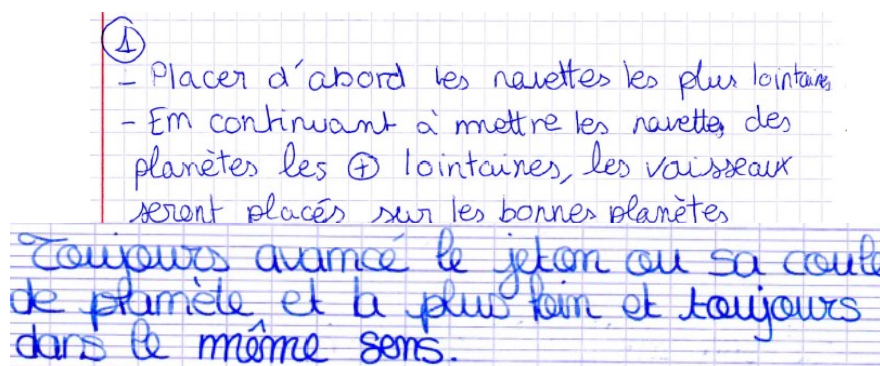 1
- Placer d'abord les navettes les plus lointaines
- Em continuant à mettre les navettes des
planètes les + lointaines, les vaisseaux
seront placés sur les bonnes planètes
Toujours avamcé le jeton ou sa coule
de plamète et la plus loin et toujours
dans le même sens.